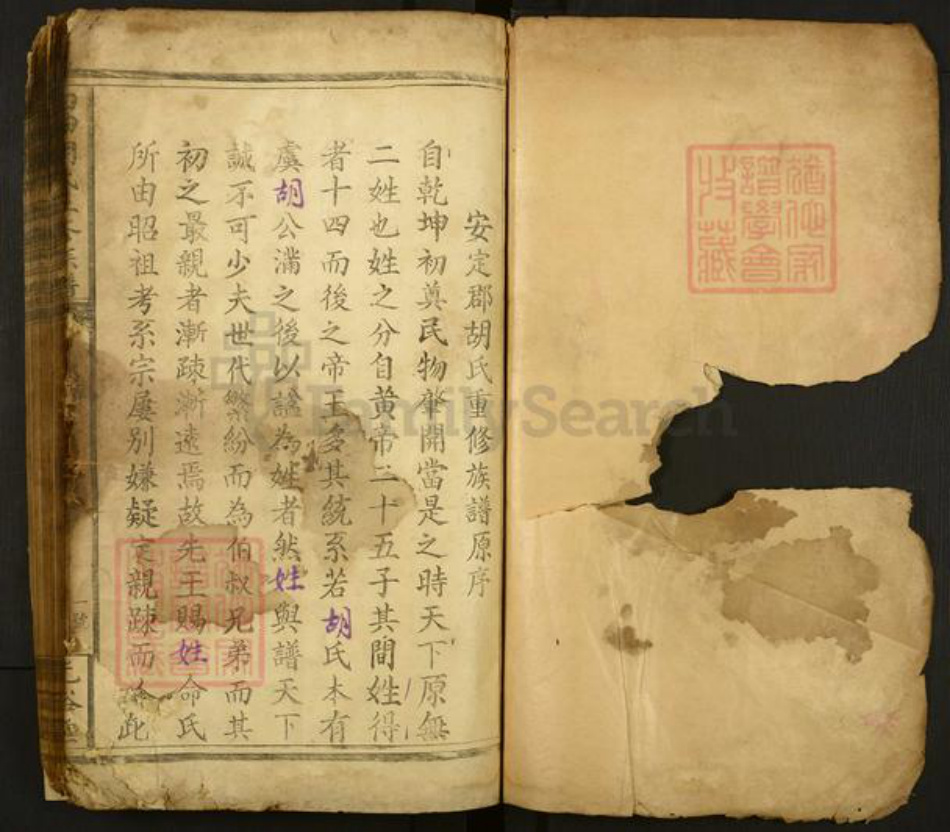 安定郡胡氏重修族譜原序
自乾坤初奠民物肇開當是之時天下原無
二姓也姓之分自黃帝二十五子其間姓得
者十四而後之帝王多其統系若胡氏本有
虞胡公滿之後以謚為姓者然姓與譜天下
誠不可少夫世代繁紛而為伯叔兄弟而其
初之最親者漸疎漸遠焉故先王賜姓命氏
所由昭祖考系宗屢別嫌疑定親疎而合此
猶他家
譜學會
收藏
FamilySearch